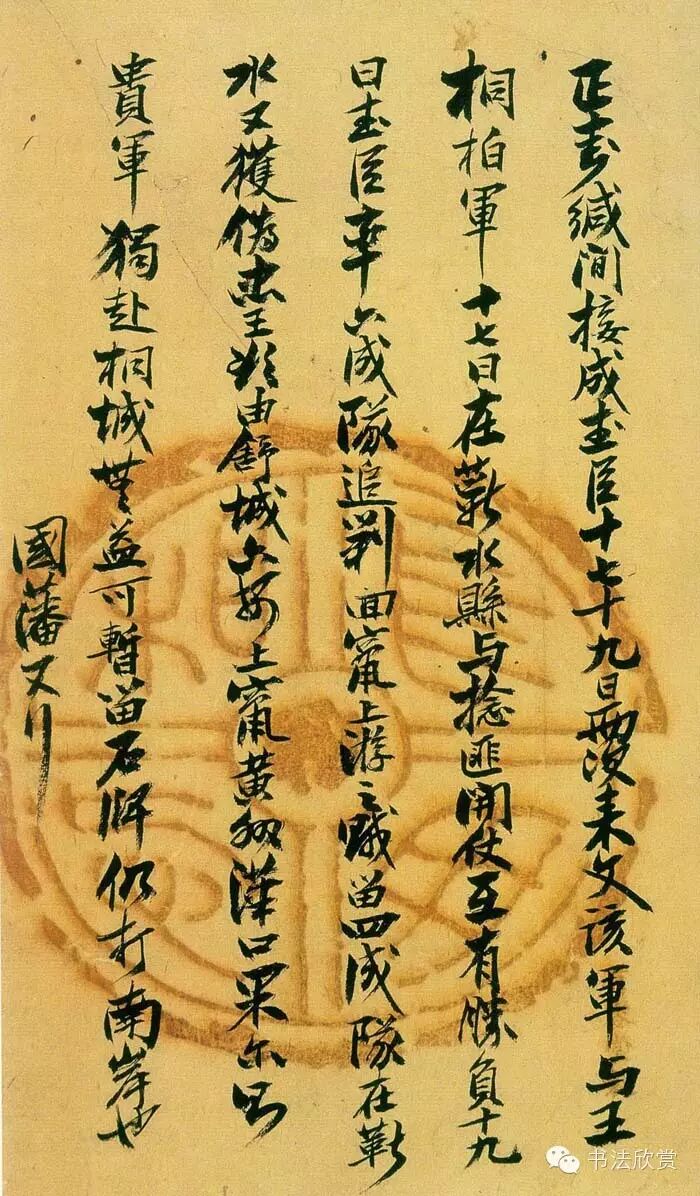 正書緘間接成武臣十七十九日兩次来文该軍与王
桐柏軍十七日在蘄水縣与捻匪開仗互有勝負十九
日武臣率六成隊追剿回竄上游之賊留四成隊在蘄
水又獲偽忠王
由舒城六安上竄黃
漢口果尔则
貴軍獨赴桐城無益可暫留石牌仍打南岸也
國藩又行
书法欣赏